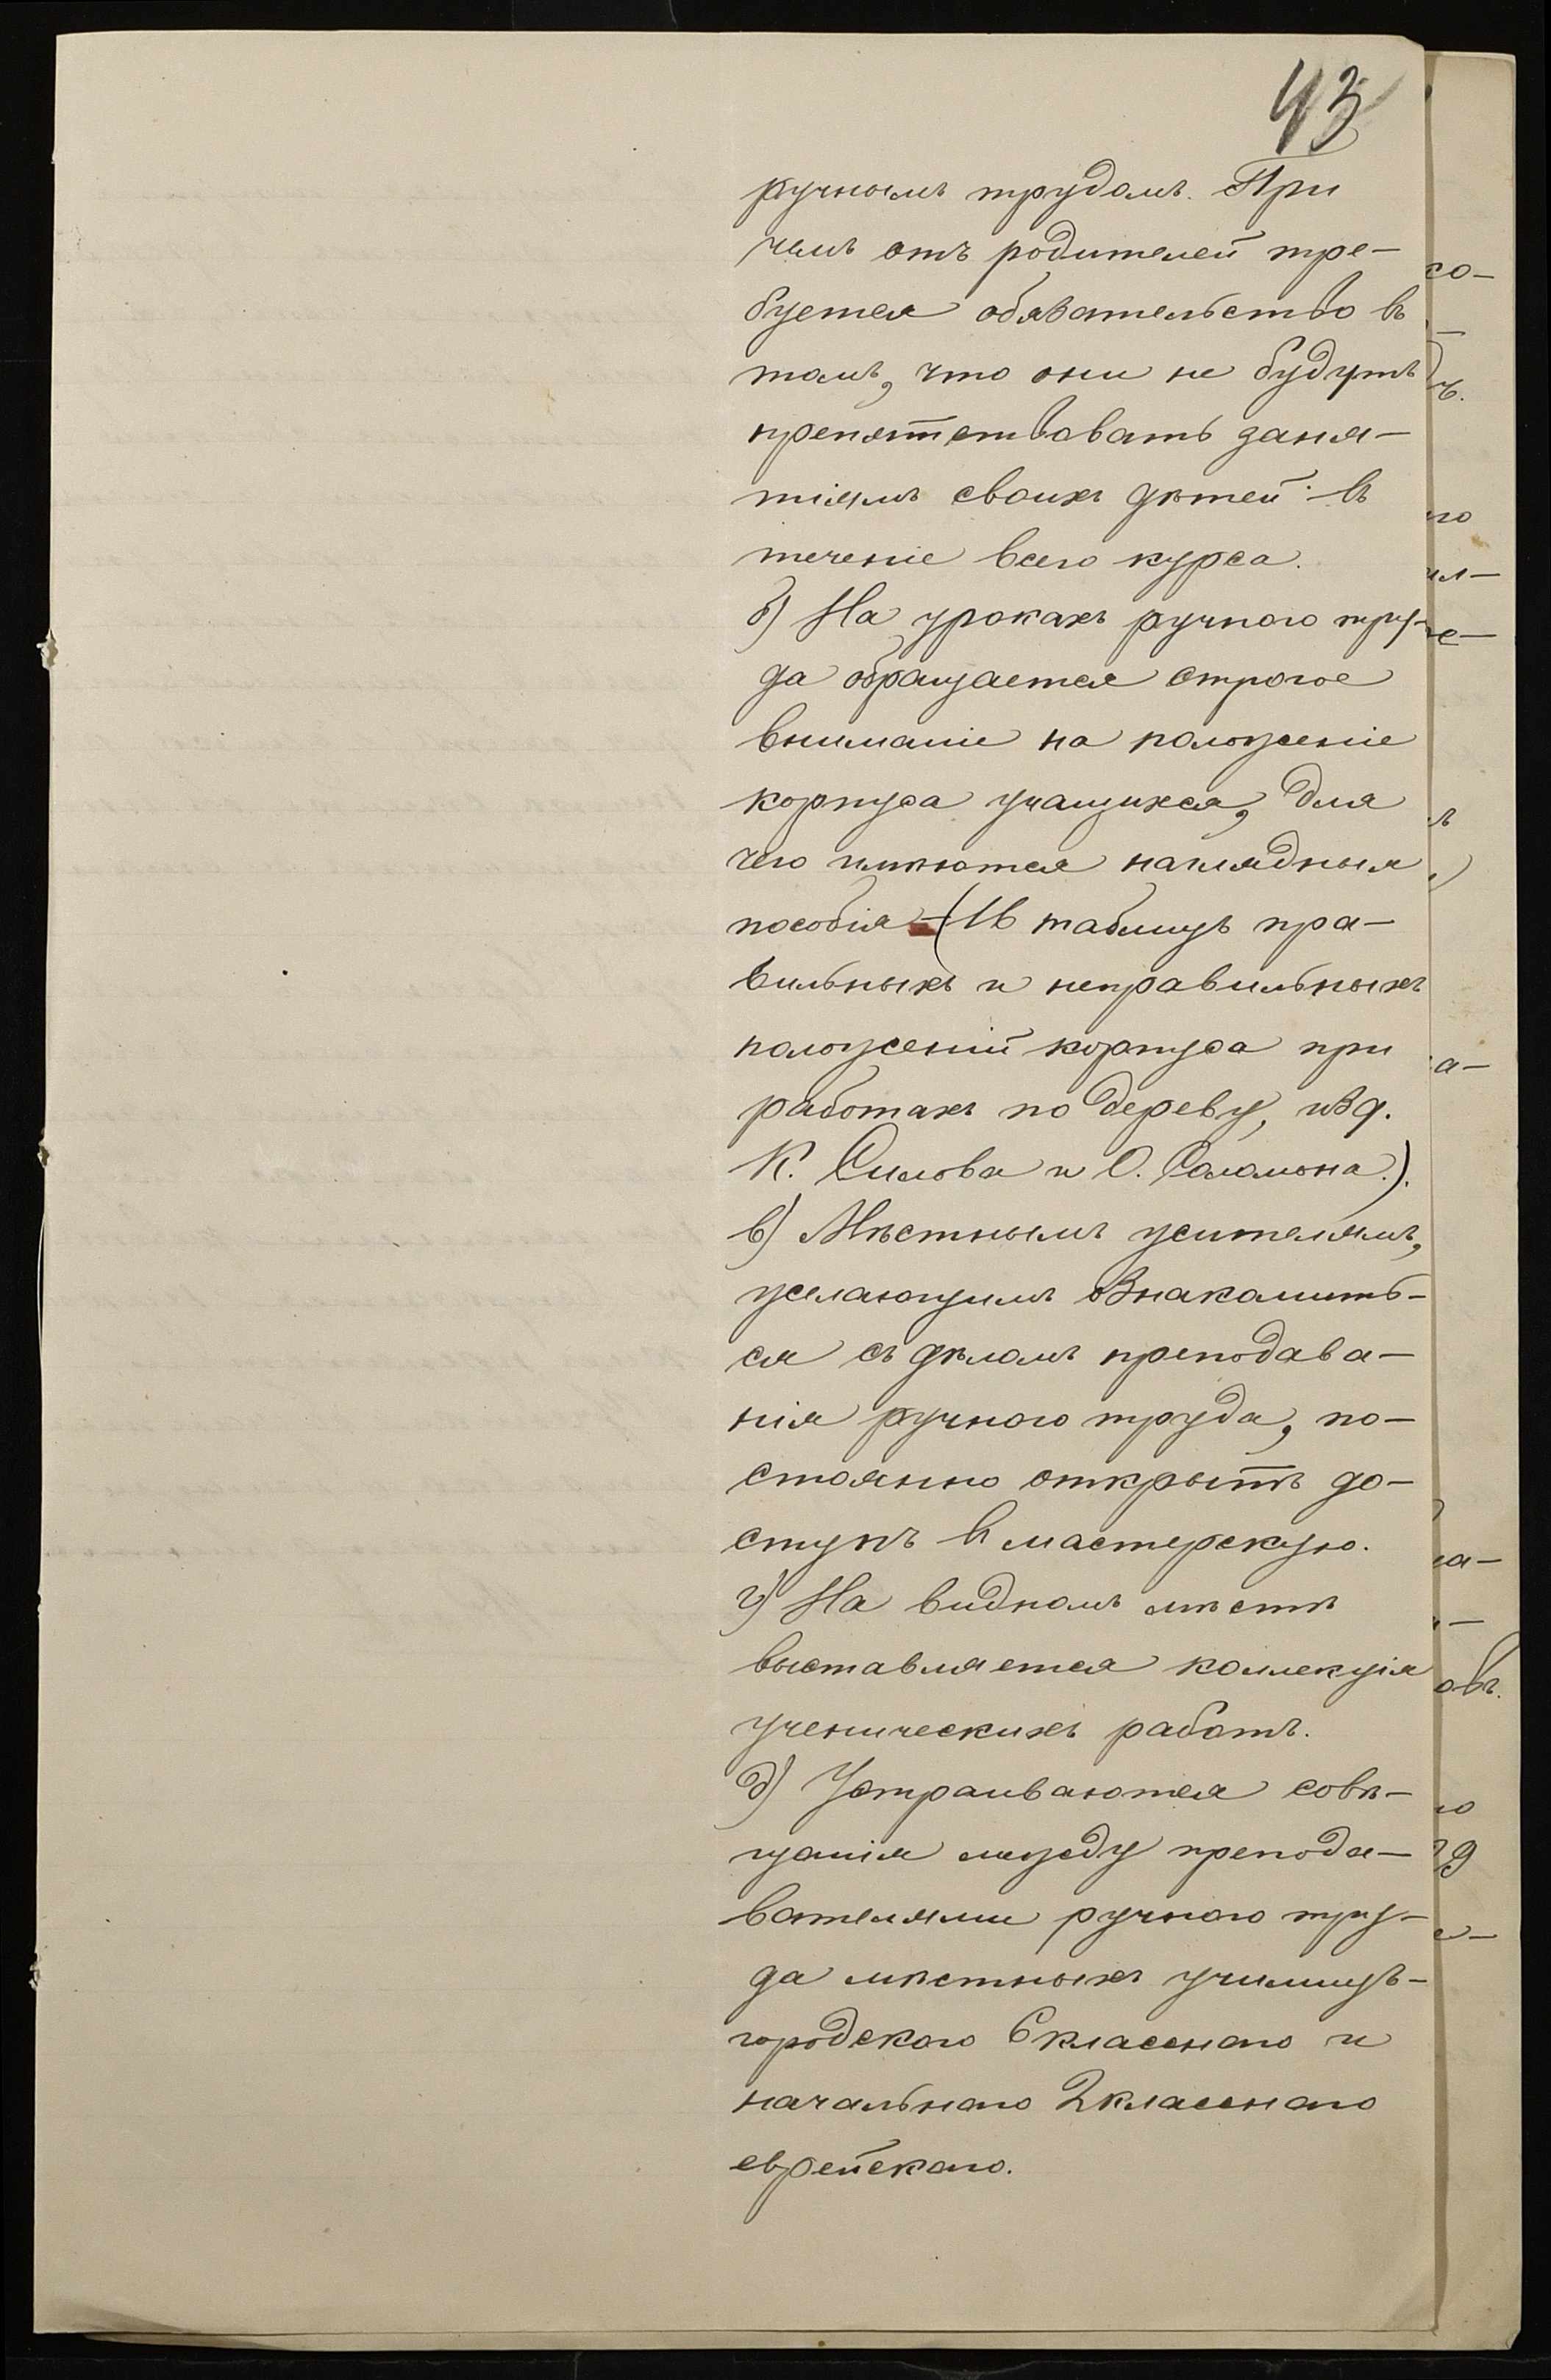 43
ручнымъ трудомъ. При
чемъ отъ родителей тре-
буется обязательство въ
томъ, что они не будутъ
препятствовать заня-
тіямъ своихъ дѣтей въ
теченіе всего курса.
б) На урокахъ ручного тру-
да обращается строгое
вниманіе на положеніе
корпуса учащихся, для
чего имѣются наглядныя
пособія - (16 таблицъ пра-
вильныхъ и неправильныхъ
положеній корпуса при
работахъ по дереву, изд.
К. Силова и О. Саломона.).
в) Мѣстнымъ учителямъ,
желающимъ ознакомить-
ся съ дѣломъ преподава-
нія ручного труда, по-
стоянно открытъ до-
ступъ въ мастерскую.
г) На видномъ мѣстѣ
выставляется коллекція
ученическихъ работъ.
д) Устраиваются совѣ-
щанія между препода-
вателями ручного тру-
да мѣстныхъ училищъ-
городского 6классного и
начальнаго 2класснаго
еврейскаго.